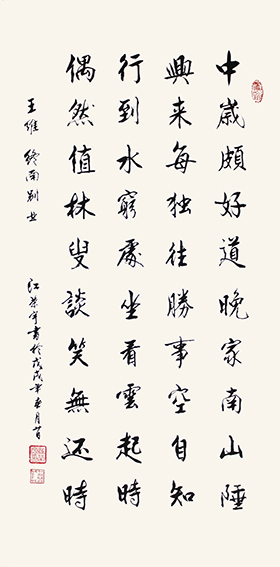 中歲頗好道晚家南山陲
興来每独往勝事空自知
行到水窮處坐看雲起時
偶然值林叟談笑無还時
王維 終南別业
江 書於戊戌年 月